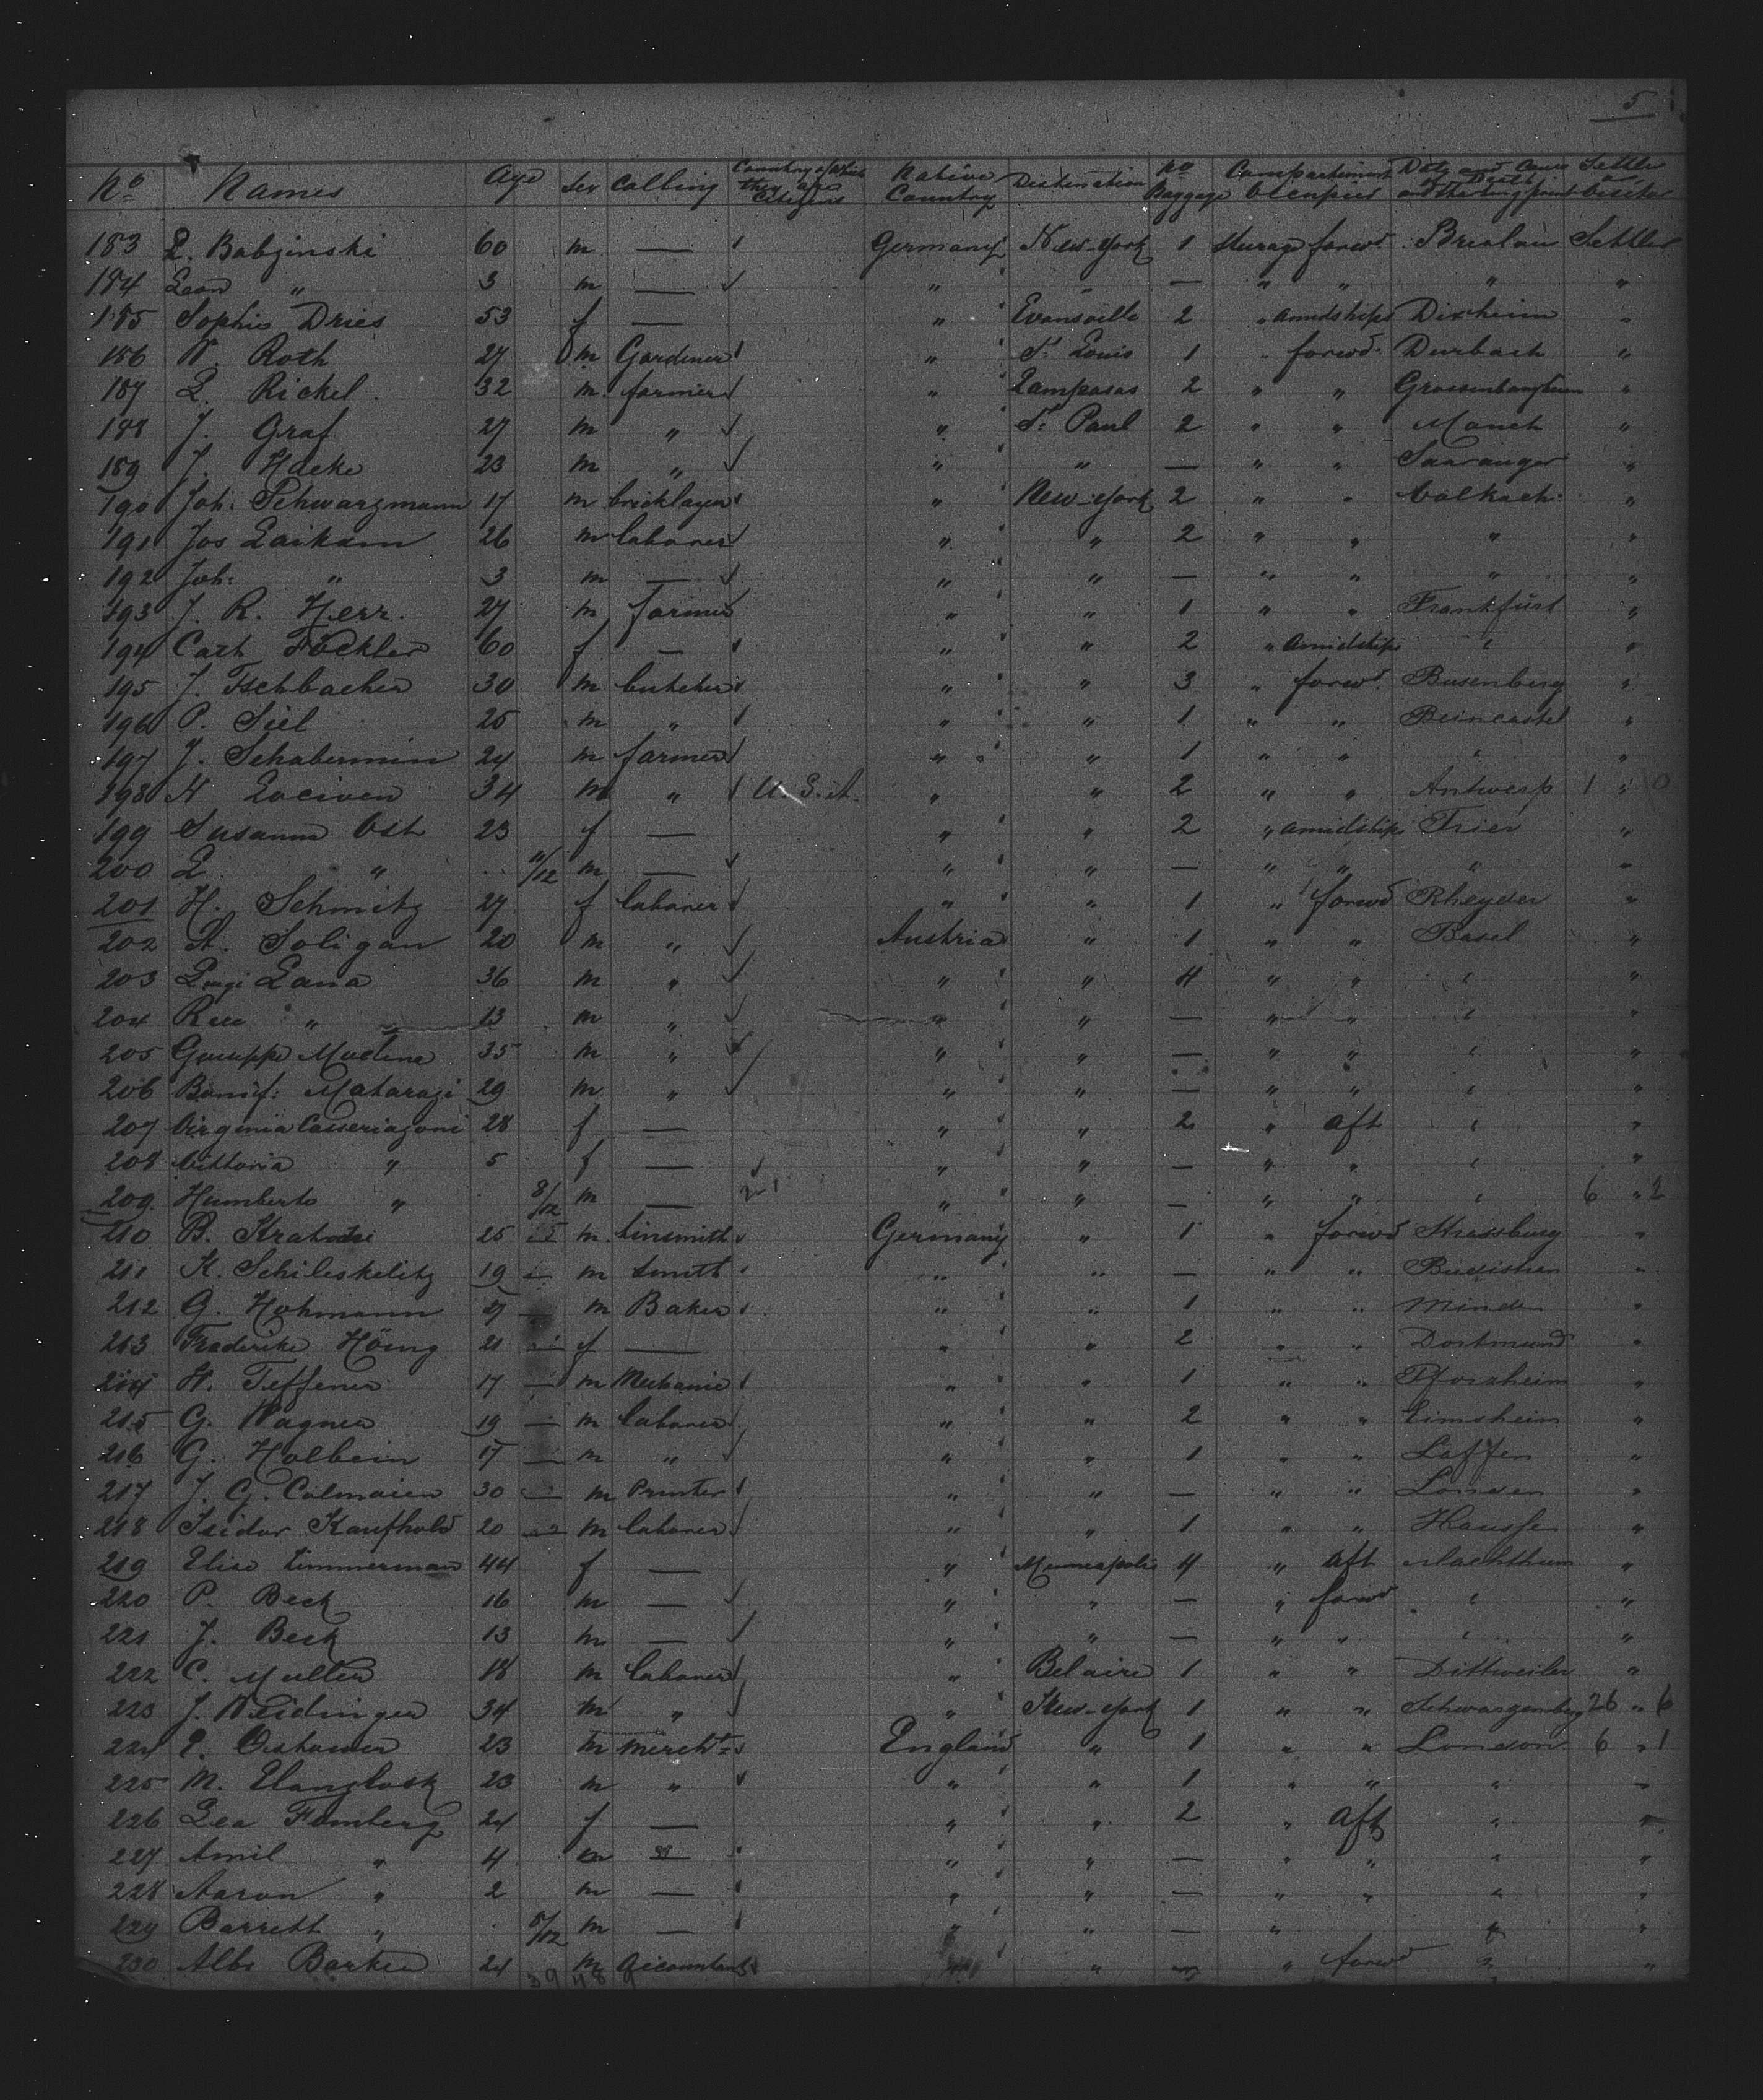 5
No Names Age Sex Calling Country of which they are Citizens Native Country Destination No Baggage Compartment Occupied Date and Cause of Death and Starting point Settler or Visitor
183 L. Babginski 60 m — Germany New-York 1 forwd Settler
184 Leon " 3 m — " " — " " " "
185 Sophie Dries 53 f — " Evansville 2 " amidships Dixheim "
186 N. Roth 27 m Gardener " St Louis 1 " forwd. Durbach "
187 L. Rickel 32 m farmer " Lampasas 2 " " "
188 J. Graf 27 m " " St Paul 2 " " "
189 J. Hacke 23 m " " " — " " "
190 Joh: Schwarzmann 17 m bricklayer " New-York 2 " " Volkach "
191 Jos Laikam 26 m laborer " " 2 " " " "
192 Joh: " 3 m — " " — " " " "
193 J. R. Herr. 27 m farmer " " 1 " " Frankfurt "
194 Cath Föckler 60 f — " " 2 " amidships " "
195 J. 30 m butcher " " 3 " forwd. Busenberg "
196 P. Siel 25 m " " " 1 " " "
197 J. 24 m farmer " " 1 " " " "
198 N 34 m " U.S.A. " " 2 " " Antwerp 1 " 0
199 Susanna Ost 23 f — " " 2 " amidships Trier "
200 L " 11/12 m — " " — " " " "
201 H. Schmitz 27 f laborer " " 1 " forwd "
202 A. Soligan 20 m " Austria " 1 " " Basel "
203 Luigi Lana 36 m " " " 4 " " " "
204 " 13 m " " " — " " " "
205 Giuseppe 35 m " " " — " " " "
206 Bonif: 29 m " " " — " " " "
207 Virginia 28 f — " " 2 " aft " "
208 Vittoria " 5 f — " " — " " " "
209. Humberto " 8/12 m — " " — " " " 6 " 2
210 B. 25 m. tinsmith Germany " 1 " forwd Strassburg "
211 K. 19 m smith " " — " " "
212 G. Hohmann 27 m Baker " " 1 " " Minden "
213 Frederike Höing 21 f — " " 2 " " Dortmund "
214 H. Teffener 17 m Mechanic " " 1 " " Pforzheim "
215 G. Wagner 19 m laborer " " 2 " " Eimsheim "
216 G. Holbein 17 m " " " 1 " " Laffen "
217 J. G. Colmaien 30 m Printer " " — " " London "
218 Isidor Kaufhold 20 m laborer " " 1 " " "
219 Elise Timmerman 44 f — " Minneapolis 4 " aft Machthum "
220 P. Beck 16 m — " " — " forwd " "
221 J. Beck 13 m — " " — " " " "
222 C. Muller 18 m laborer " Belaire 1 " " Dittweiler "
223 J. Weidinger 34 m " " New-York 1 " " Schwarzenberg 26 " 6
224 23 m mercht England " 1 " " London 6 " 1
225 M. 23 m " " " 1 " " " "
226 Lea 24 f — " " 2 " aft " "
227 Amil " 4 m — " " — " " " "
228 Aaron " 2 m — " " — " " " "
229 Barrett " 5/12 m — " " — " " "
230 Albr Barker 24 m accountant " " " forwd " "
39 48 9